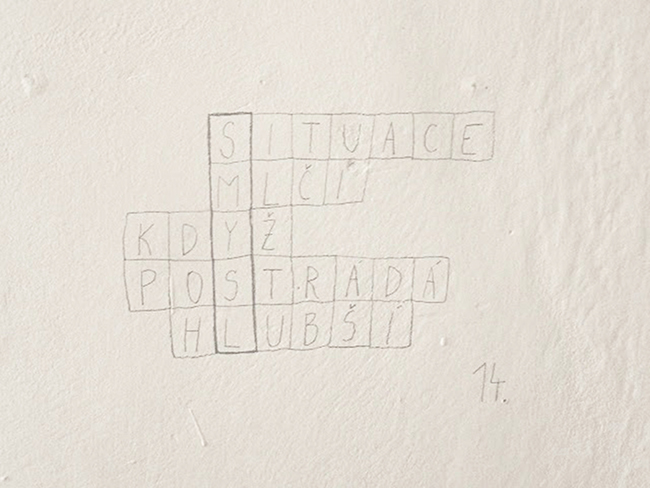 SITUACE
MLČÍ
KDYŽ
POSTRÁDÁ
HLUBŠÍ
14.